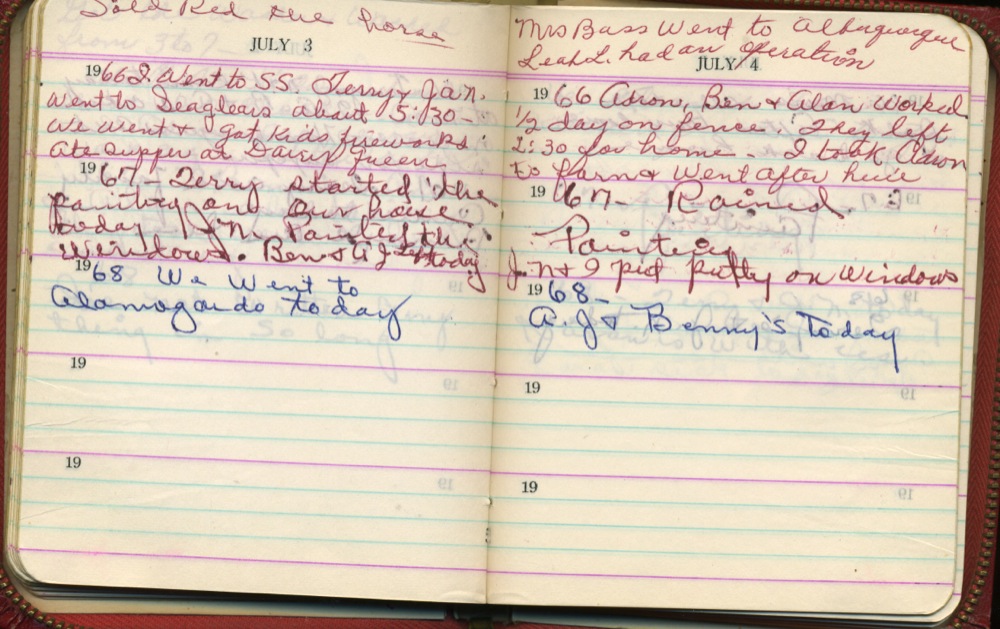 Sold Red the horse
JULY 3
1966 I. Went to SS. Terry & Jan.
Went to Seagleus about 5:30 -
We went & got kids fireworks
ate supper at Dairy Queen
1967 - Terry started the
painting on our house
today J.N. Painted the
windows. Ben & A J left today
1968 We Went to
Alamogordo today
19
19
Mrs Bass Went to Alberquerque
Leah L. had an operation
JULY 4
1966 Aaron, Ben & Alan worked
1/2 day on fence. They left
1:30 for home - I took Aaron
to farm & went after
1967 - Rained
Painting
J.N & I put putty on windows
1968 -
A.J & Benny's Today
19
19